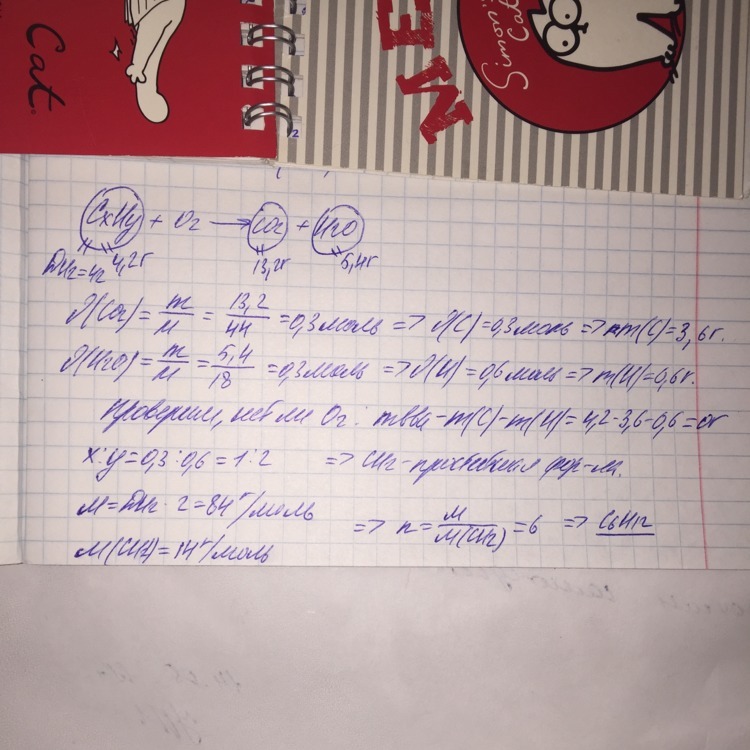 Cat
Simon's Cat
EN
CxHy + O2 → CO2 + H2O
DH2=42 4,2г 13,2г 5,4г
ν(CO2) = m/M = 13,2/44 = 0,3 моль => ν(C) = 0,3 моль => m(C) = 3,6г.
ν(H2O) = m/M = 5,4/18 = 0,3 моль => ν(H) = 0,6 моль => m(H) = 0,6г.
Проверим, нет ли O2: mв-ва - m(C) - m(H) = 4,2-3,6-0,6 = 0г
x:y = 0,3:0,6 = 1:2 => CH2 - простейшая фор-ла.
M = DH2 · 2 = 84 г/моль => n = M/M(CH2) = 6 => C6H12
M(CH2) = 14 г/моль